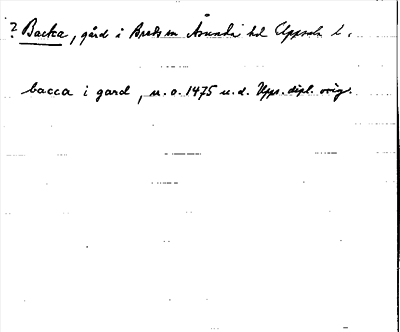 ? Backa, gård i Breds sn Åsunda hd Uppsala l.
bacca i gard, u.o. 1475 u.d. Upps. dipl. orig.